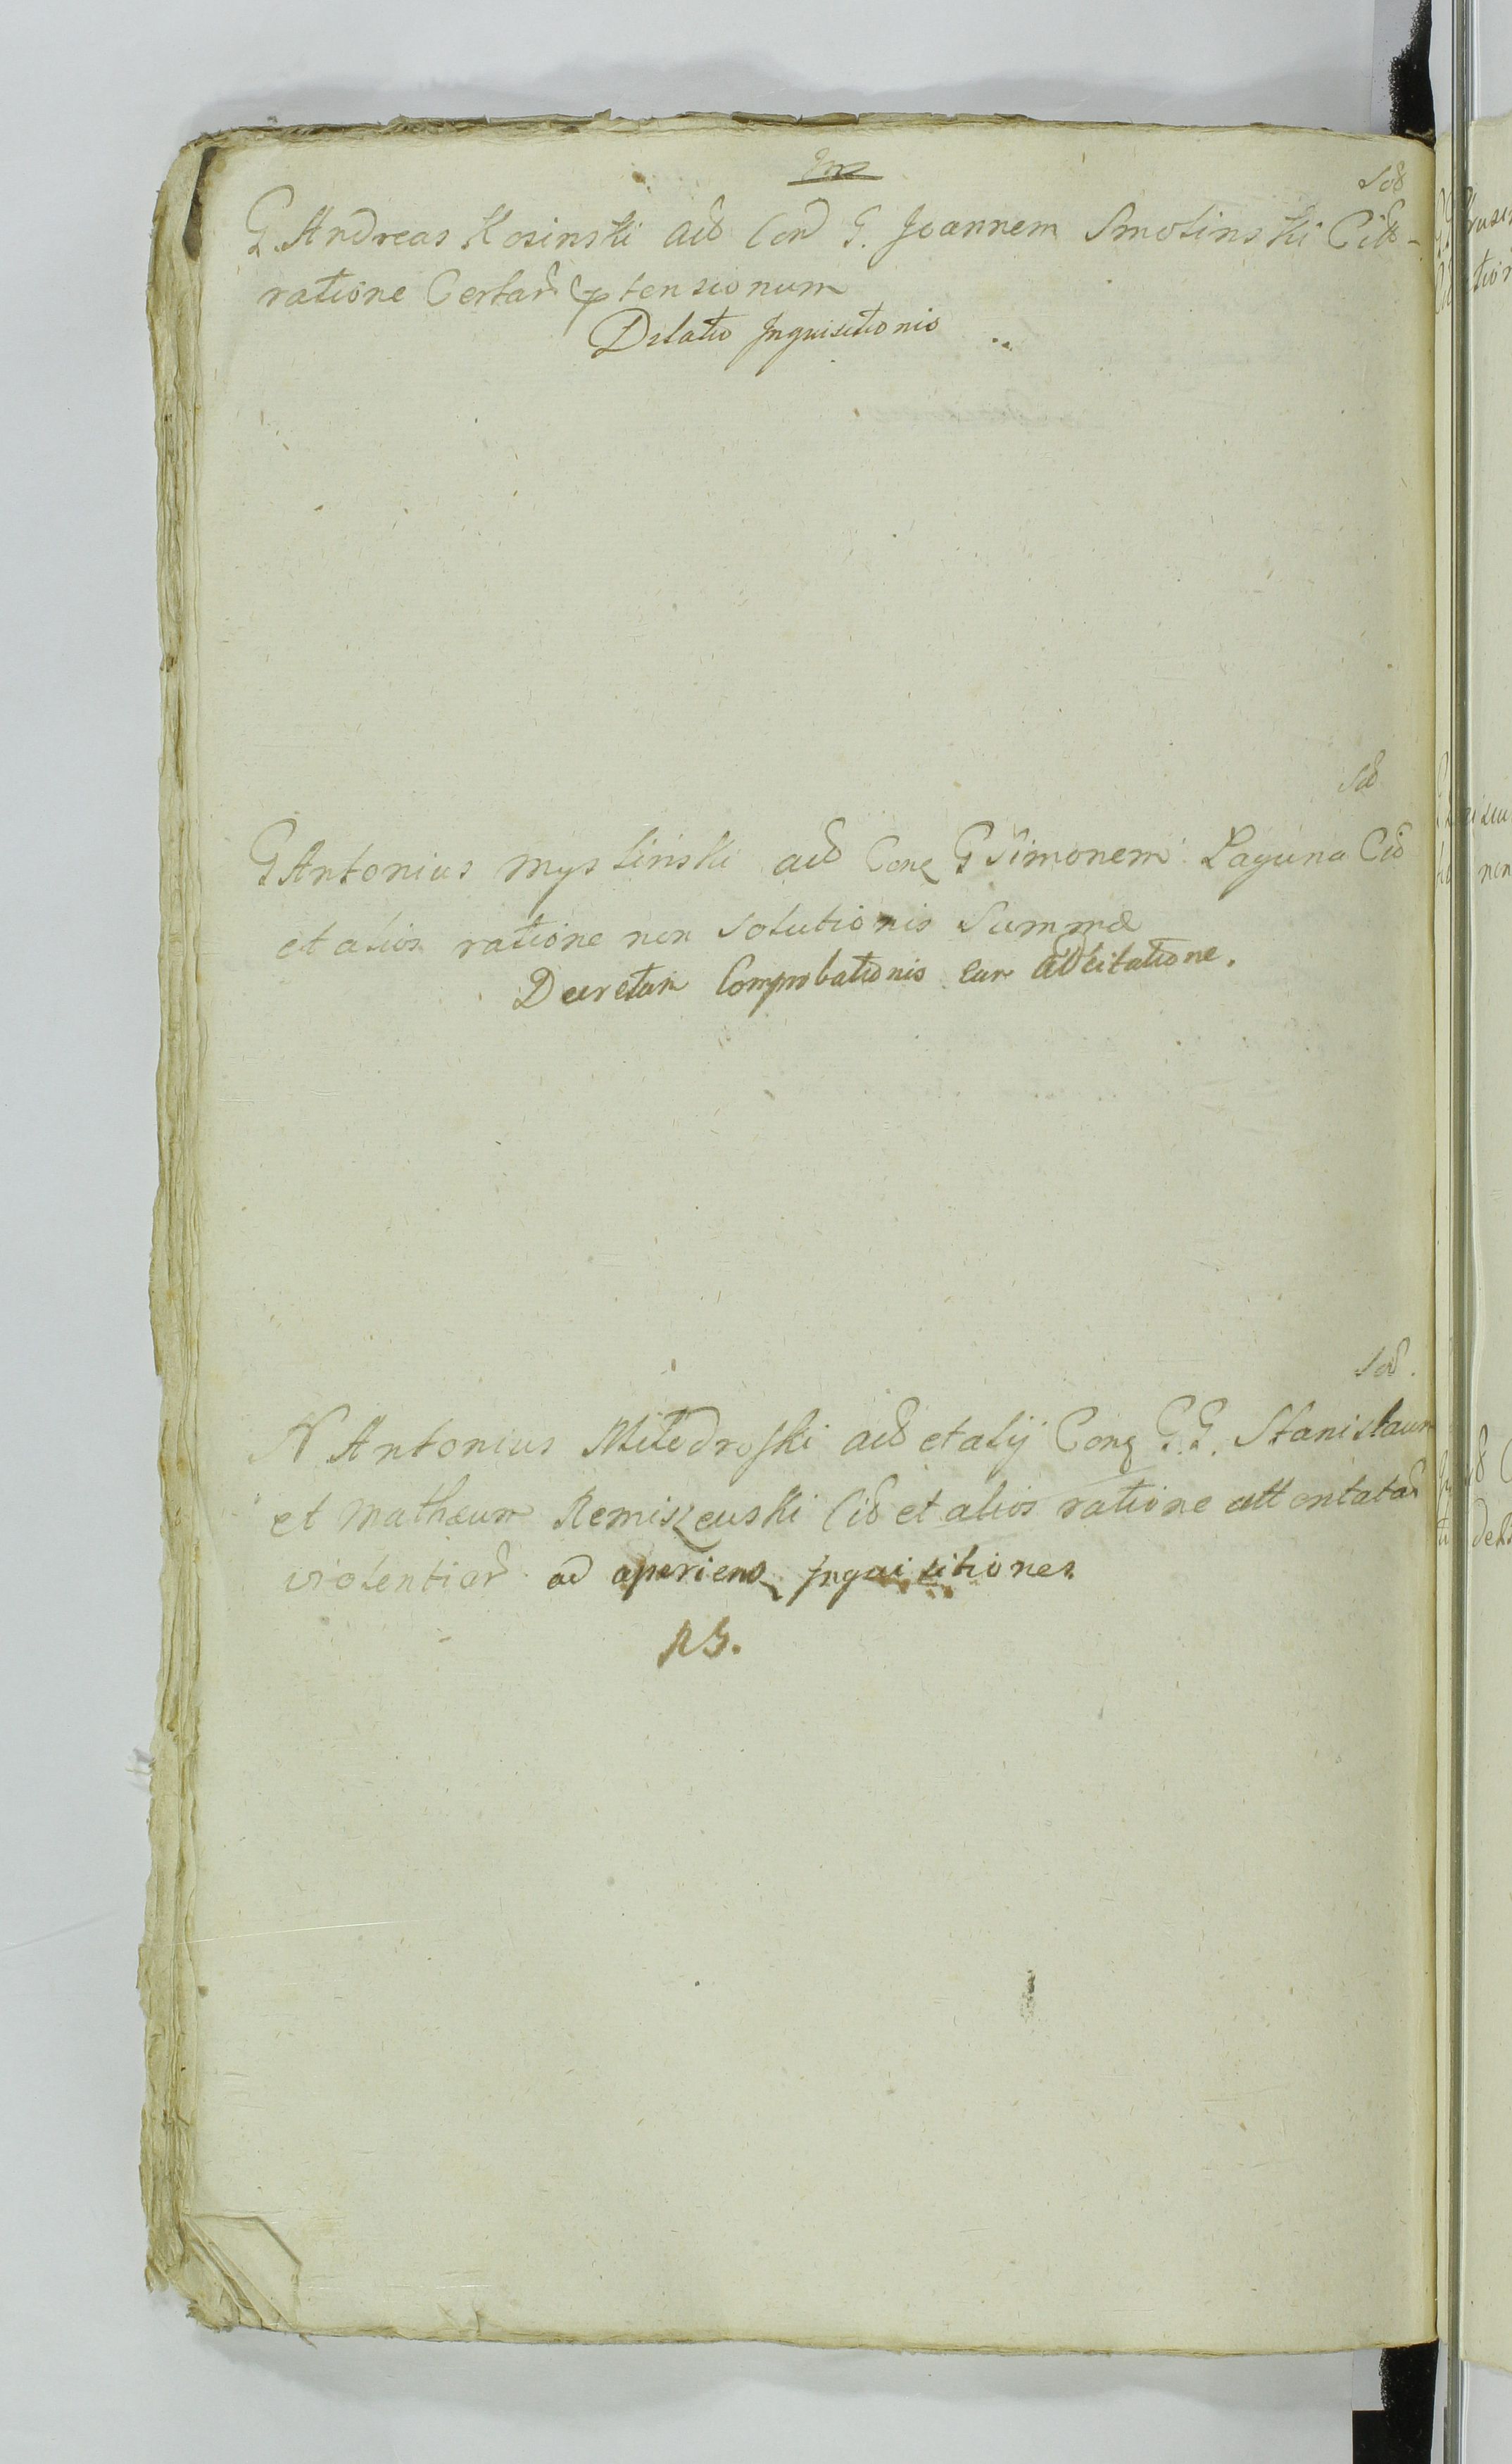 Sod
G. Andreas Kosinski acto Con G. Joannem Smolinski Citt-
ratione Certar ptensionum
Dilatio Inquisitionis
Sod
G Antonius Myslinski acto Conq G Simonem Laguna Cit
et alios ratione non Solutionis Summæ
Decretum Comprobationis cum Adcitatione.
Sod.
N Antonius acto et alÿ Conq G.G. Stanislaum
et Mathæum Remiszewski Cit et alios ratione attentatar
violentiar ad aperiend Inquisitiones
RS.